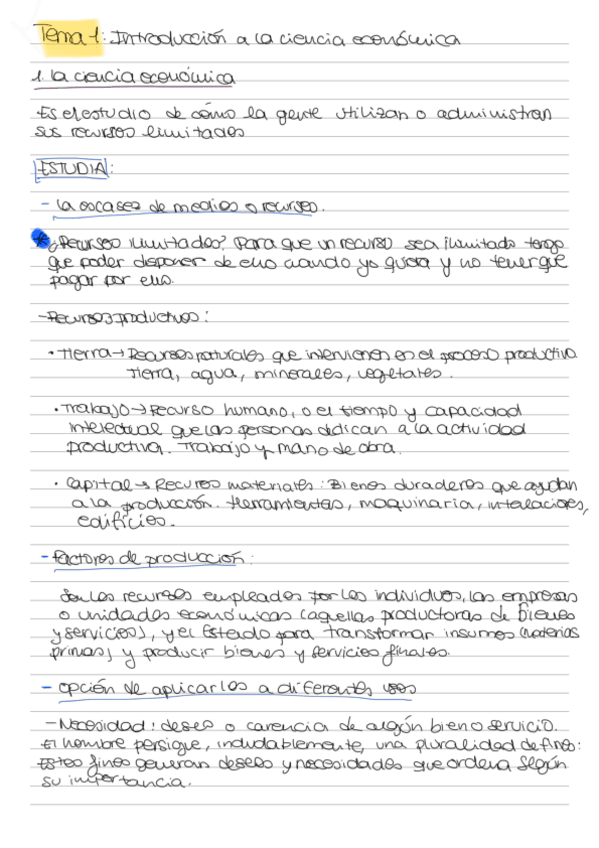 Tema 1: Introducción a la ciencia económica
1. la ciencia económica
Es el estudio de cómo la gente utilizan o administran
sus recursos limitados
ESTUDIA:
- la escases de medios o recursos.
* ¿Recursos ilimitados? Para que un recurso sea ilimitado tengo
que poder disponer de ello cuando yo quiera y no tener que
pagar por ello.
- Recursos productivos:
• Tierra → Recursos naturales que intervienen en el proceso productivo
Tierra, agua, minerales, vegetales.
• Trabajo → Recurso humano, o el tiempo y capacidad
intelectual que las personas dedican a la actividad
productiva. Trabajo y mano de obra.
• Capital → Recursos materiales: Bienes duraderos que ayudan
a la producción. Herramientas, maquinaria, instalaciones,
edificios.
- Factores de producción:
Son los recursos empleados por los individuos, las empresas
o unidades económicas (aquellas productoras de bienes
y servicios), y el Estado para transformar insumos (materias
primas) y producir bienes y servicios finales.
- opción de aplicarlos a diferentes usos
- Necesidad: deseo o carencia de algún bien o servicio.
El hombre persigue, indudablemente, una pluralidad de fines:
Estos fines generan deseos y necesidades que ordena según
su importancia.